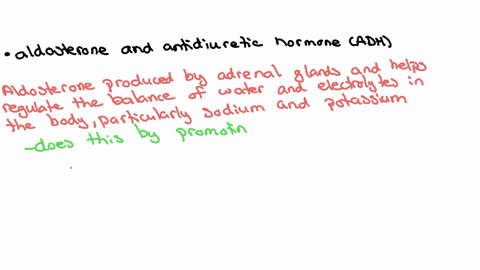 • aldosterone and antidiuretic hormone (ADH)
Aldosterone produced by adrenal glands and helps
regulate the balance of water and electrolytes in
the body, particularly sodium and potassium
-does this by promotin